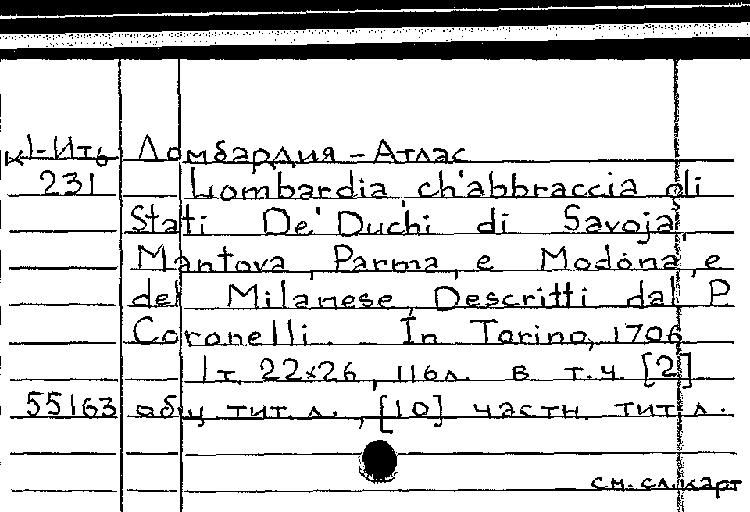 К)-Ить Ломбардия - Атлас
231 Lombardia, ch'abbraccia gli
Stati De' Duchi di Savoja,
Mantova, Parma, e Modona, e
del Milanese, Descritti dal P.
Coronelli. - In Torino, 1706
1 т. 22x26, 116л. в т.ч. [2]
55163 общ. тит. л., [10] частн. тит. л.
см. сл. карт